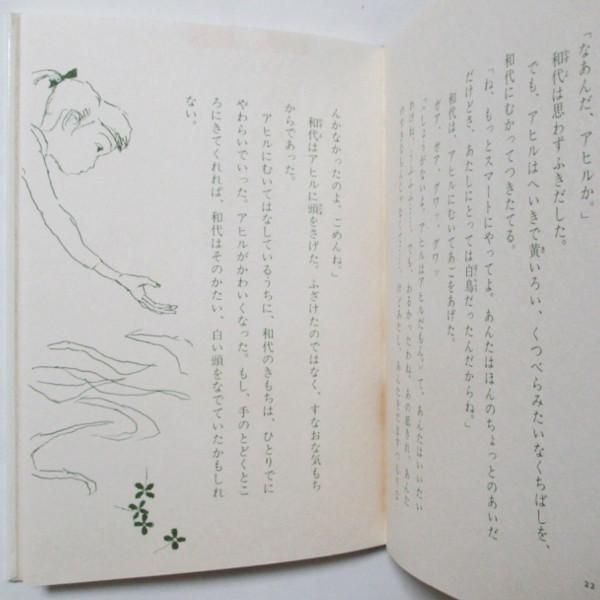 「なあんだ、アヒルか。」
和代は思わずふきだした。
でも、アヒルはへいきで黄いろい、くつべらみたいなくちばしを、
和代にむかってつきたてる。
「ね、もっとスマートにやってよ。あんたはほんのちょっとのあいだ
だけどさ、あたしにとっては白鳥だったんだからね。」
和代は、アヒルにむいてあごをあげた。
ガア、ガア、グワッ、グワッ
「しょうがないよ、アヒルはアヒルだもん」て、あんたはいいたい
わけね、うふふふ……。でも、わるかったわね。あの起きれ、あんた
んかなかったのよ、ごめんね。」
和代はアヒルに頭をさげた。ふざけたのではなく、すなおな気もち
からであった。
アヒルにむいてはなしているうちに、和代のきもちは、ひとりでに
やわらいでいった。アヒルがかわいくなった。もし、手のとどくとこ
ろにきてくれれば、和代はそのかたい、白い頭をなでていたかもしれ
ない。
22